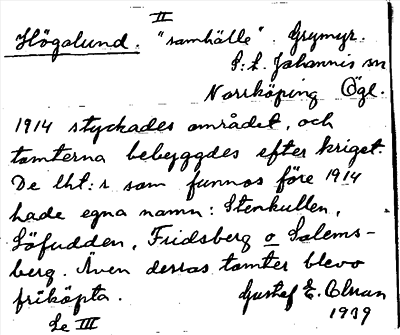 II
Högalund. "samhälle". Grymyr.
S:t Johannis sn
Norrköping Ögl.
1914 styckades området, och
tomterna bebyggdes efter kriget.
De lht:r som funnos före 1914
hade egna namn: Stenkullen,
Löfudden, Fridsberg o Salems-
berg. Även derras tomter blevo
friköpta.
Gustaf E. Olsson
Se III
1939